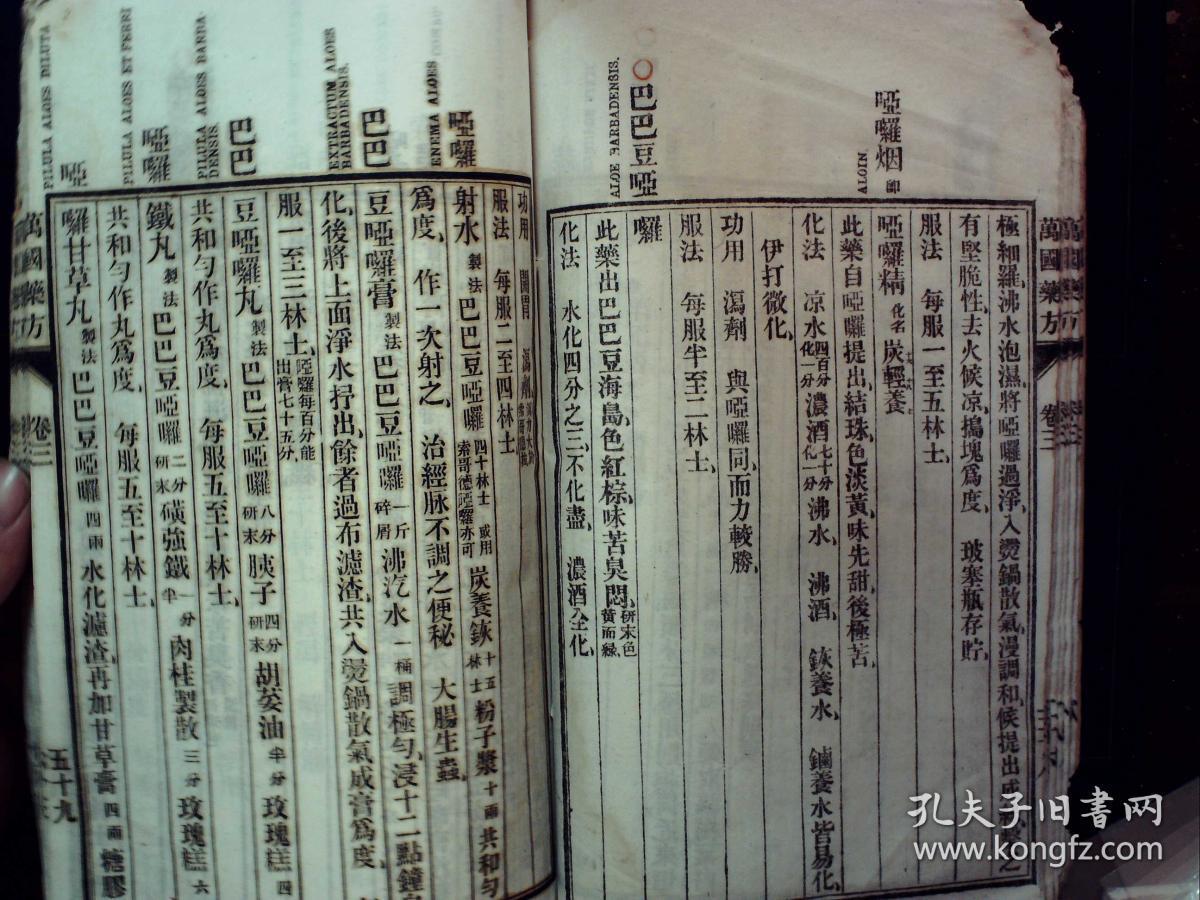 萬國藥方 卷三
極細羅沸水泡濕將啞囉過淨入燙鍋散氣漫調和候提出
有堅脆性去火候凉搗塊爲度 玻塞瓶存貯
服法 每服一至五林士
啞囉烟 卽
ALOIN.
啞囉精 化名 炭輕養
此藥自啞囉提出結珠色淡黃味先甜後極苦
化法 凉水四百分化一分 濃酒七十分化一分 沸水 沸酒 鋏養水 鏀養水皆易化
伊打微化
功用 瀉劑 與啞囉同而力較勝
服法 每服半至二林士
○巴巴豆啞
ALOE BARBADENSIS.
囉
此藥出巴巴豆海島色紅棕味苦臭悶 研末色黃而綠
化法 水化四分之三不化盡 濃酒全化
功用 開胃 瀉劑
服法 每服二至四林士
啞囉
ENEMA ALOES
射水 製法 巴巴豆啞囉 四十林士 或用索哥德啞囉亦可 炭養鋏 十五林士 粉子漿 十兩 共和勻
爲度 作一次射之 治經脉不調之便秘 大腸生蟲
巴巴
EXTRACTUM ALOES BARBADENSIS.
豆啞囉膏 製法 巴巴豆啞囉 一斤碎屑 沸汽水 一桶 調極勻浸十二點鐘
化後將上面淨水抒出餘者過布濾渣共入燙鍋散氣成膏爲度
服一至三林士 啞囉每百分能出膏七十五分
巴巴
PILULA ALOES BARBADENSIS
豆啞囉丸 製法 巴巴豆啞囉 八分研末 胰子 四分研末 胡荽油 半分 玫瑰糕 四
共和勻作丸爲度 每服五至十林士
啞囉
PILULA ALOES ET FERRI
鐵丸 製法 巴巴豆啞囉 二分研末 磺強鐵 一分半 肉桂製散 三分 玫瑰糕 六
共和勻作丸爲度 每服五至十林士
啞
PILULA ALOES DILUTA
囉甘草丸 製法 巴巴豆啞囉 四兩 水化濾渣再加甘草膏 四兩 糖膠
萬國藥方 卷三 五十九
孔夫子旧书网
www.kongfz.com